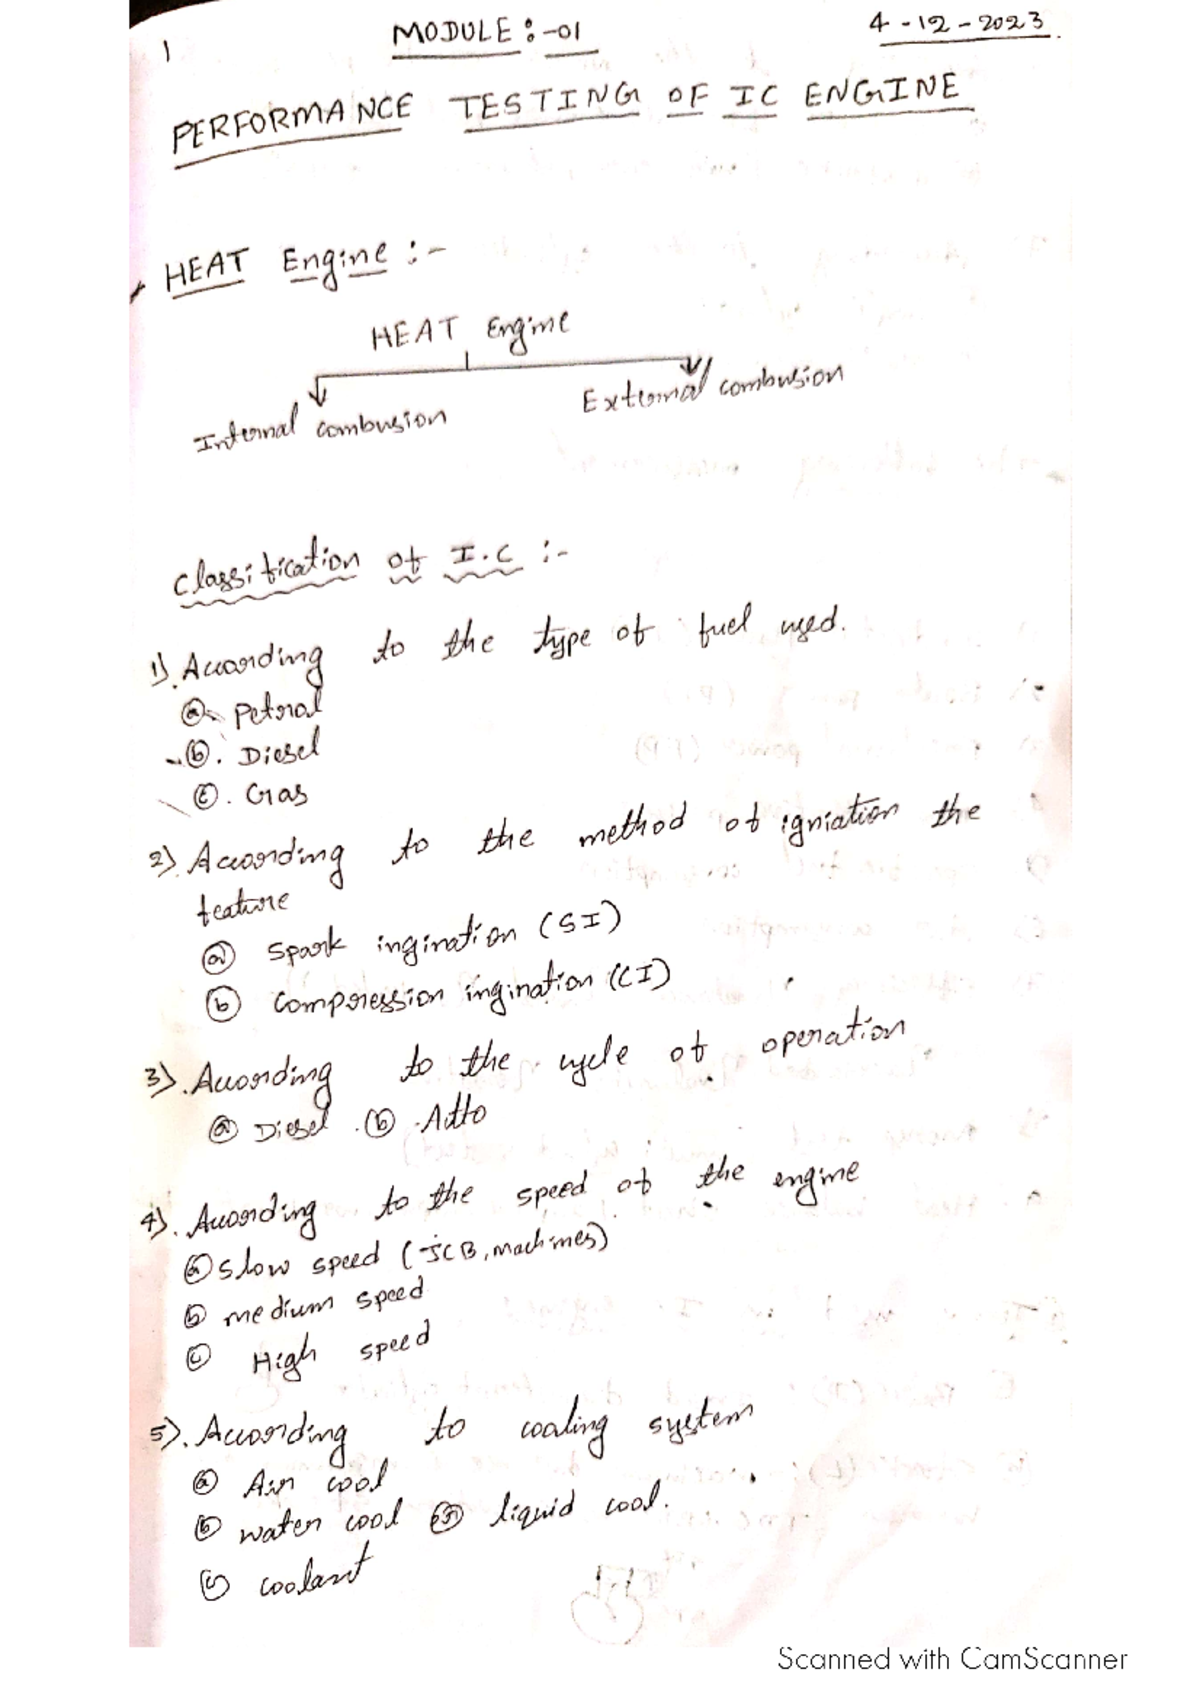 1
MODULE :-01
4-12-2023
PERFORMANCE TESTING OF IC ENGINE
HEAT Engine :-
HEAT Engine
Internal combusion
External combusion
Classification of I.C :-
1). According to the type of fuel used.
(a) Petrol
(b). Diesel
(c). Gas
2). According to the method of igniation the
feature
(a) Spark ingination (SI)
(b) compression ingination (CI)
3). According to the cycle of operation
(a) Diesel .(b) .Atto
4). According to the speed of the engine
(a) slow speed (JCB, machines)
(b) medium speed
(c) High speed
5). According to coaling system
(a) Air cool
(b) water cool (or) liquid cool.
(c) coolant
Scanned with CamScanner